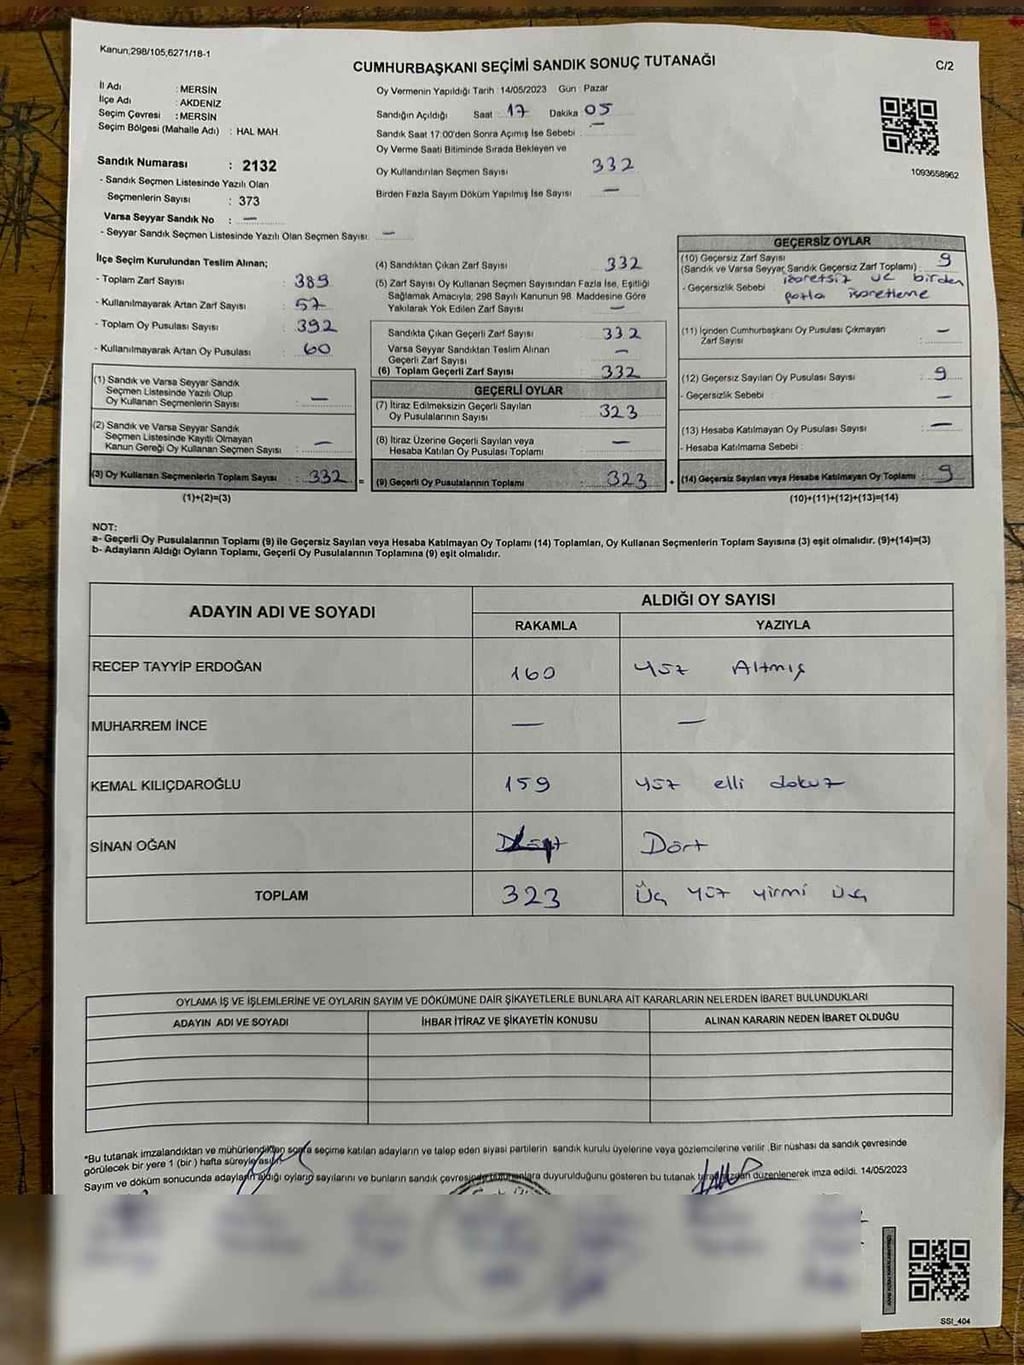 Kanun,298/105,6271/18-1
CUMHURBAŞKANI SEÇİMİ SANDIK SONUÇ TUTANAĞI
C/2
İl Adı : MERSİN
İlçe Adı : AKDENİZ
Seçim Çevresi : MERSİN
Seçim Bölgesi (Mahalle Adı) : HAL MAH.
Sandık Numarası : 2132
- Sandık Seçmen Listesinde Yazılı Olan
Seçmenlerin Sayısı : 373
Varsa Seyyar Sandık No : —
- Seyyar Sandık Seçmen Listesinde Yazılı Olan Seçmen Sayısı: —
Oy Vermenin Yapıldığı Tarih : 14/05/2023 Gün : Pazar
Sandığın Açıldığı Saat 17 Dakika 05
Sandık Saat 17:00'den Sonra Açımış İse Sebebi : —
Oy Verme Saati Bitiminde Sırada Bekleyen ve
Oy Kullandırılan Seçmen Sayısı 332
Birden Fazla Sayım Döküm Yapılmış İse Sayısı —
1093658962
İlçe Seçim Kurulundan Teslim Alınan;
- Toplam Zarf Sayısı : 389
- Kullanılmayarak Artan Zarf Sayısı : 57
- Toplam Oy Pusulası Sayısı : 392
- Kullanılmayarak Artan Oy Pusulası : 60
(1) Sandık ve Varsa Seyyar Sandık
Seçmen Listesinde Yazılı Olup
Oy Kullanan Seçmenlerin Sayısı : —
(2) Sandık ve Varsa Seyyar Sandık
Seçmen Listesinde Kayıtlı Olmayan
Kanun Gereği Oy Kullanan Seçmen Sayısı : —
(3) Oy Kullanan Seçmenlerin Toplam Sayısı : 332
(1)+(2)=(3)
(4) Sandıktan Çıkan Zarf Sayısı 332
(5) Zarf Sayısı Oy Kullanan Seçmen Sayısından Fazla İse, Eşitliği
Sağlamak Amacıyla; 298 Sayılı Kanunun 98. Maddesine Göre
Yakılarak Yok Edilen Zarf Sayısı —
Sandıkta Çıkan Geçerli Zarf Sayısı 332
Varsa Seyyar Sandıktan Teslim Alınan
Geçerli Zarf Sayısı —
(6) Toplam Geçerli Zarf Sayısı 332
GEÇERLİ OYLAR
(7) İtiraz Edilmeksizin Geçerli Sayılan
Oy Pusulalarının Sayısı 323
(8) İtiraz Üzerine Geçerli Sayılan veya
Hesaba Katılan Oy Pusulası Toplamı —
= (9) Geçerli Oy Pusulalarının Toplamı 323
GEÇERSİZ OYLAR
(10) Geçersiz Zarf Sayısı
(Sandık ve Varsa Seyyar Sandık Geçersiz Zarf Toplamı) : 9
- Geçersizlik Sebebi : işaretsiz ve birden
fazla işaretleme
(11) İçinden Cumhurbaşkanı Oy Pusulası Çıkmayan
Zarf Sayısı : —
(12) Geçersiz Sayılan Oy Pusulası Sayısı : 9
- Geçersizlik Sebebi : —
(13) Hesaba Katılmayan Oy Pusulası Sayısı : —
- Hesaba Katılmama Sebebi :
+ (14) Geçersiz Sayılan veya Hesaba Katılmayan Oy Toplamı : 9
(10)+(11)+(12)+(13)=(14)
NOT:
a- Geçerli Oy Pusulalarının Toplamı (9) ile Geçersiz Sayılan veya Hesaba Katılmayan Oy Toplamı (14) Toplamları, Oy Kullanan Seçmenlerin Toplam Sayısına (3) eşit olmalıdır. (9)+(14)=(3)
b- Adayların Aldığı Oyların Toplamı, Geçerli Oy Pusulalarının Toplamına (9) eşit olmalıdır.
ADAYIN ADI VE SOYADI
ALDIĞI OY SAYISI
RAKAMLA YAZIYLA
RECEP TAYYİP ERDOĞAN 160 Yüz Altmış
MUHARREM İNCE — —
KEMAL KILIÇDAROĞLU 159 Yüz elli dokuz
SİNAN OĞAN Dört
TOPLAM 323 Üç yüz yirmi üç
OYLAMA İŞ VE İŞLEMLERİNE VE OYLARIN SAYIM VE DÖKÜMÜNE DAİR ŞİKAYETLERLE BUNLARA AİT KARARLARIN NELERDEN İBARET BULUNDUKLARI
ADAYIN ADI VE SOYADI İHBAR İTİRAZ VE ŞİKAYETİN KONUSU ALINAN KARARIN NEDEN İBARET OLDUĞU
*Bu tutanak imzalandıktan ve mühürlendikten sonra seçime katılan adayların ve talep eden siyasi partilerin sandık kurulu üyelerine veya gözlemcilerine verilir .Bir nüshası da sandık çevresinde
görülecek bir yere 1 (bir) hafta süreyle asılır.
Sayım ve döküm sonucunda adayların aldığı oyların sayılarını ve bunların sandık çevresinde bulunanlara duyurulduğunu gösteren bu tutanak düzenlenerek imza edildi. 14/05/2023
SSt_404